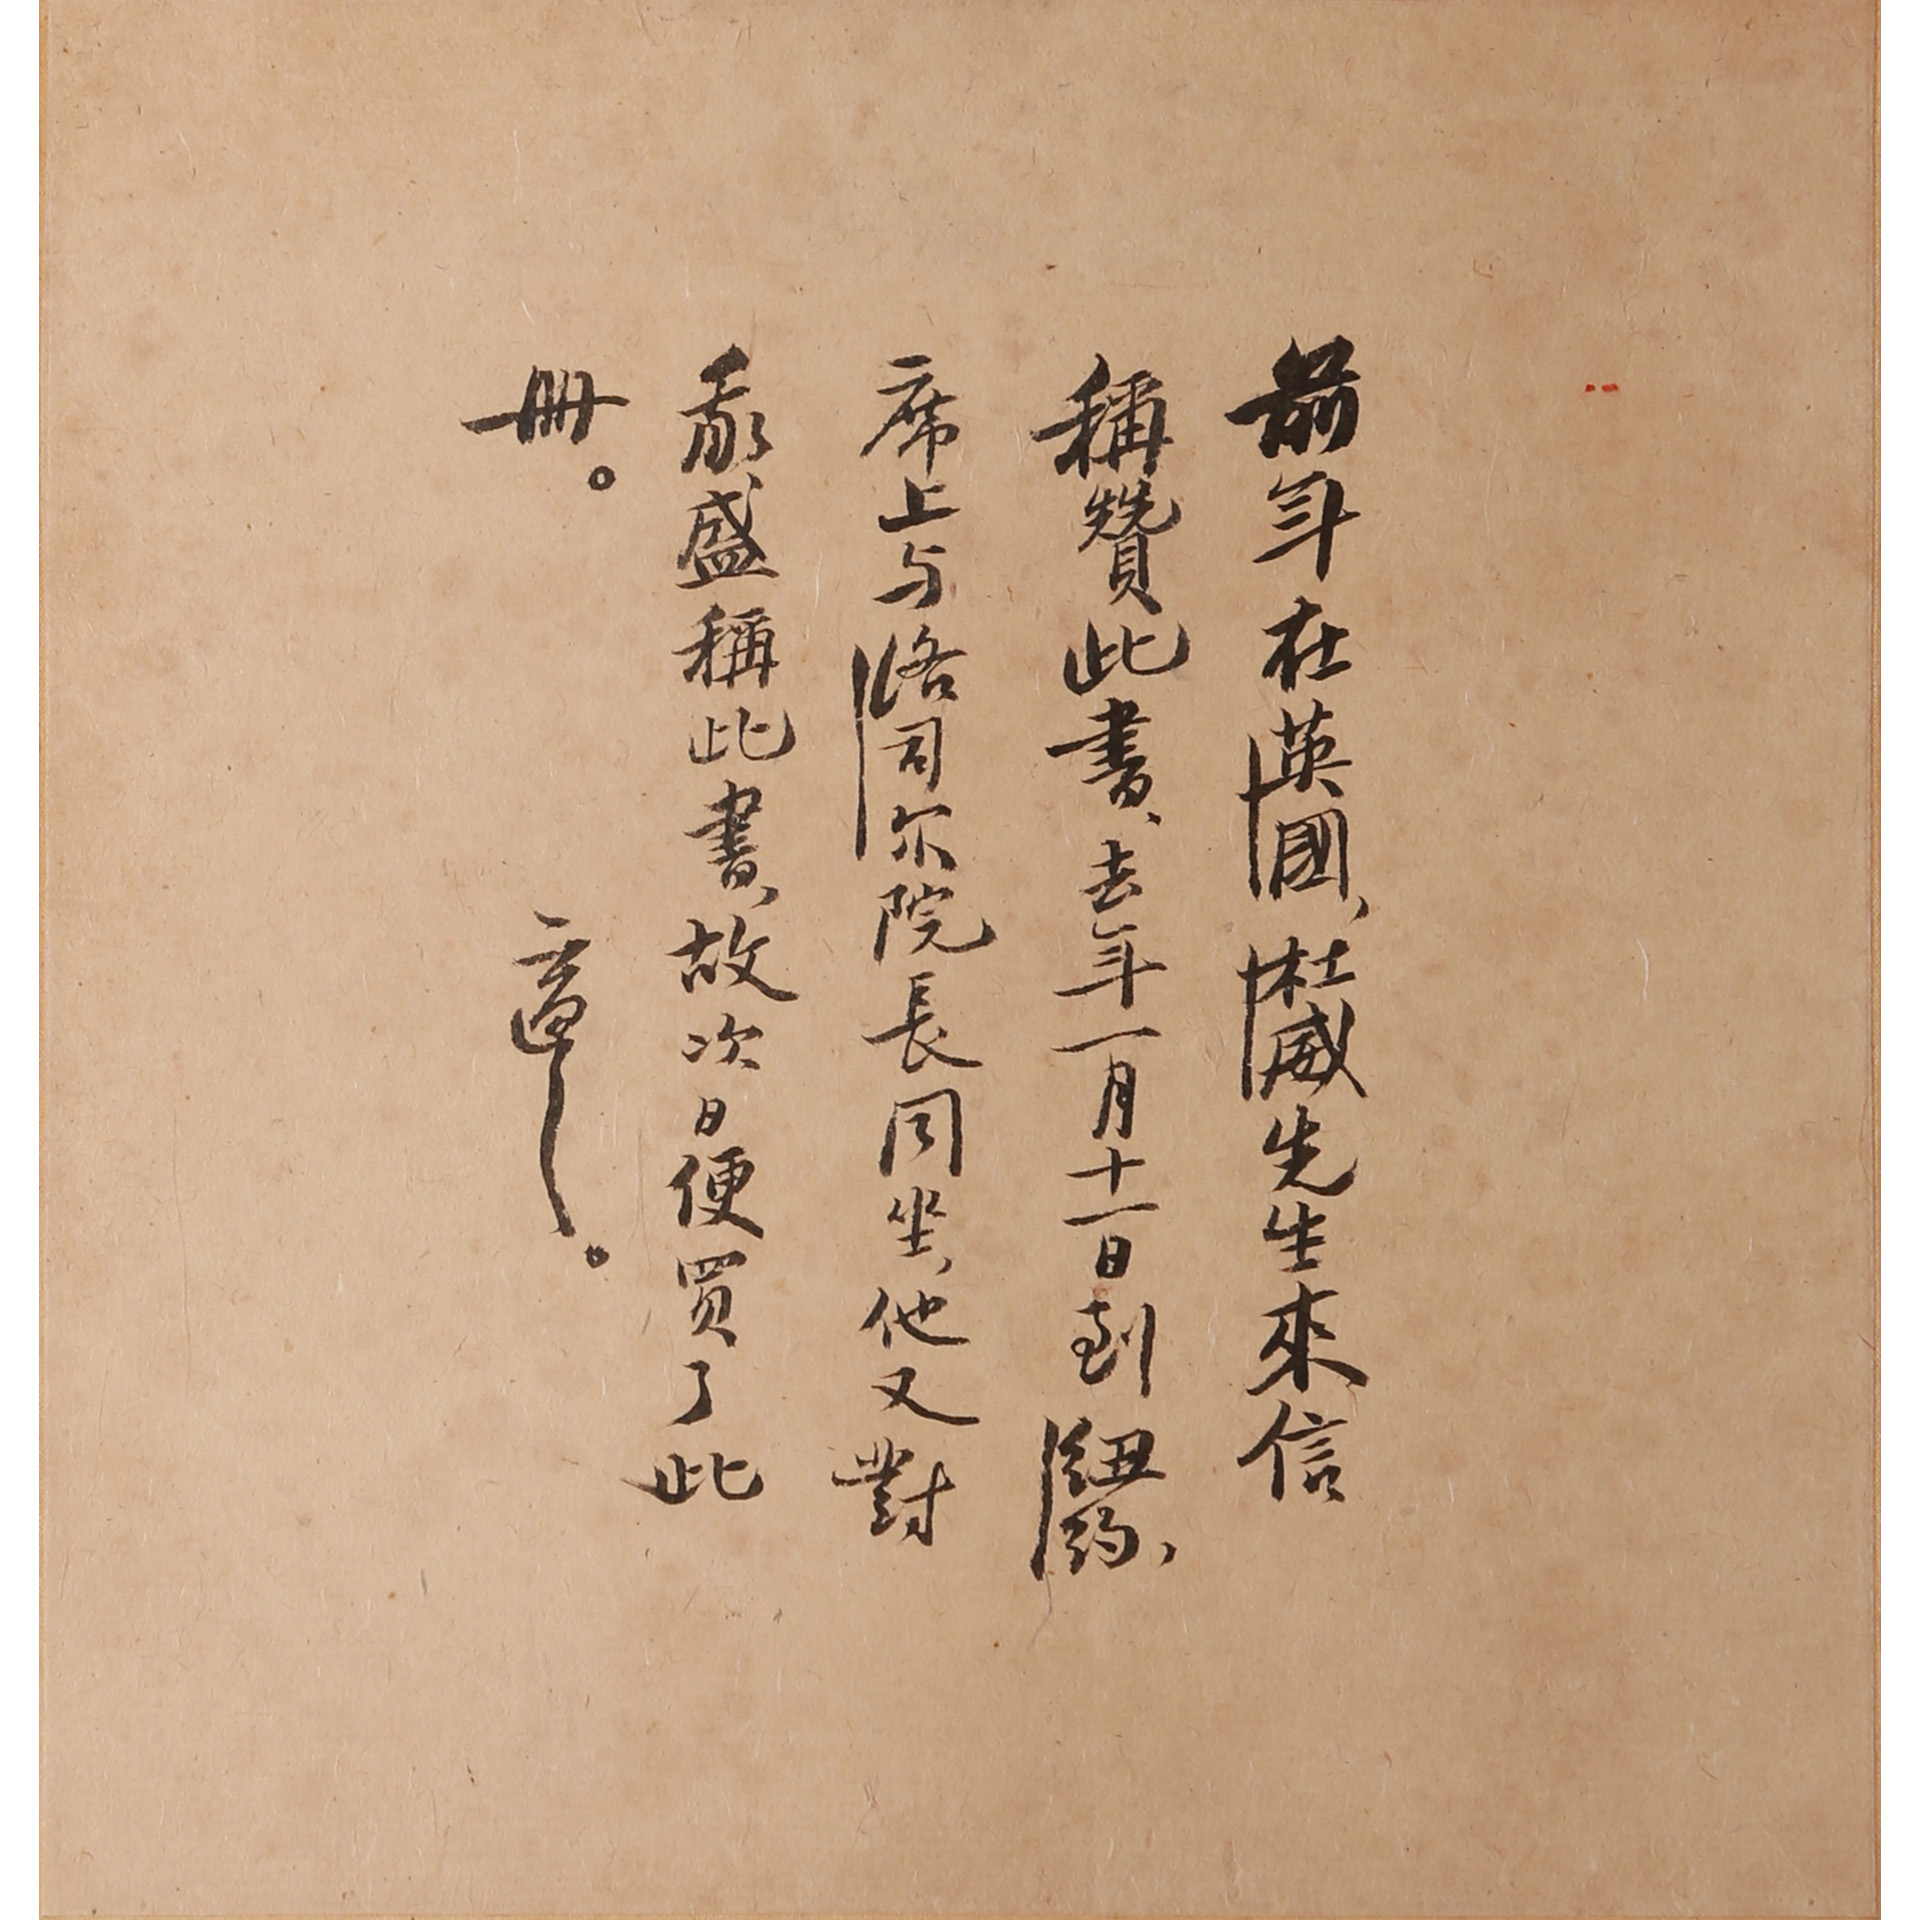 前年在英國、杜威先生來信
稱贊此書、去年一月十一日到紐約、
席上与洛司尔院長同坐、他又對
我盛稱此書、故次日便買了此
冊。
適。